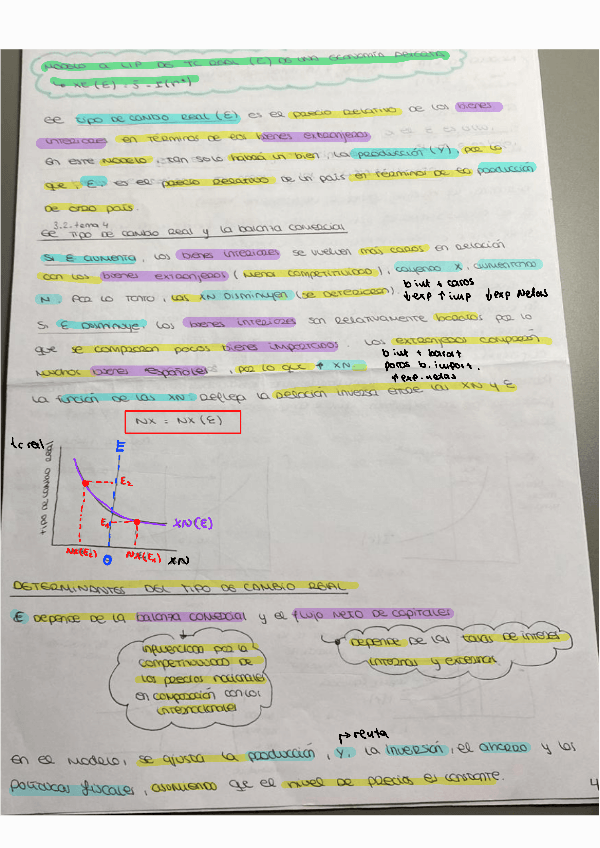 MODELO A L/P DE TC REAL (E) DE UNA ECONOMÍA ABIERTA
↳ XE (E) = S - I(r*)
EE TIPO DE CAMBIO REAL (E) ES EL PRECIO RELATIVO DE LOS BIENES
INTERIORES EN TÉRMINOS DE LOS BIENES EXTRANJEROS
EN ESTE MODELO, TAN SOLO HABRÁ UN BIEN, LA PRODUCCIÓN (Y), POR LO
QUE, E, ES EL PRECIO RELATIVO DE UN PAÍS EN TÉRMINOS DE LA PRODUCCIÓN
DE OTRO PAÍS.
3.2. tema 4
EE TIPO DE CAMBIO REAL Y LA BALANZA COMERCIAL
SI E AUMENTA, LOS BIENES INTERIORES SE VUELVEN MÁS CAROS EN RELACIÓN
CON LOS BIENES EXTRANJEROS (MENOR COMPETITIVIDAD), CAYENDO X, AUMENTANDO
N. POR LO TANTO, LAS XN DISMINUYEN (SE DETERIORAN)
b int + caros
↓exp ↑imp ↓exp Netas
SI E DISMINUYE, LOS BIENES INTERIORES SON RELATIVAMENTE BARATOS POR LO
QUE SE COMPRARÁN POCOS BIENES IMPORTADOS. LOS EXTRANJEROS COMPRARÁN
MUCHOS BIENES ESPAÑOLES, POR LO QUE ↑ XN.
b int + barat
pocos b. import.
↑exp.netas
LA FUNCIÓN DE LAS XN REFLEJA LA RELACIÓN INVERSA ENTRE LAS XN Y E
NX = NX (E)
tc real
TIPO DE CAMBIO REAL
E2
E1
XN(E)
NX(E2)
0
NX(E1)
XN
DETERMINANTES DEL TIPO DE CAMBIO REAL
E DEPENDE DE LA BALANZA COMERCIAL Y EL FLUJO NETO DE CAPITALES
INFLUENCIADA POR LA
COMPETITIVIDAD DE
LOS PRECIOS NACIONALES
EN COMPARACIÓN CON LOS
INTERNACIONALES
DEPENDE DE LAS TASAS DE INTERÉS
INTERNAS Y EXTERNAS
renta
EN EL MODELO, SE AJUSTA LA PRODUCCIÓN, Y, LA INVERSIÓN, EL AHORRO Y LAS
POLÍTICAS FISCALES, ASUMIENDO QUE EL NIVEL DE PRECIOS ES CONSTANTE.
4